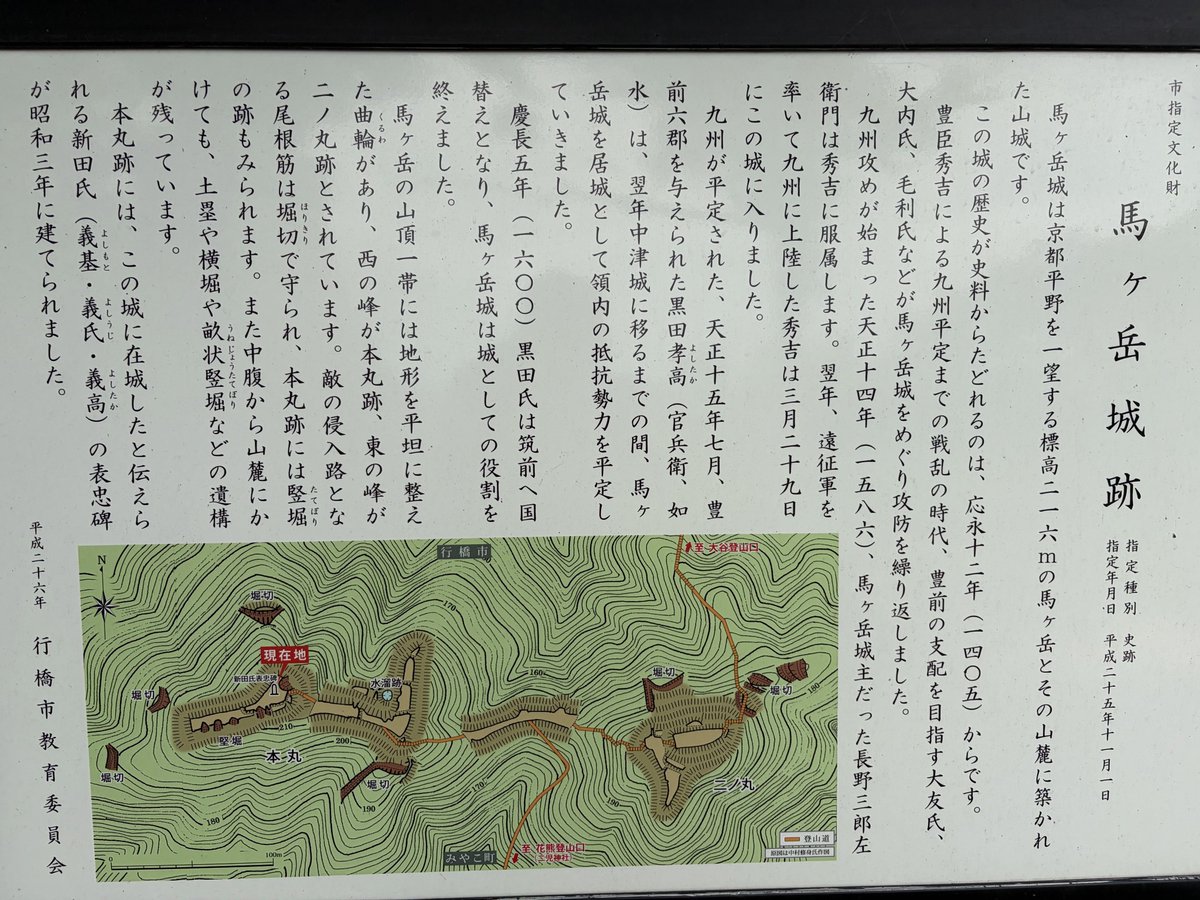 市指定文化財
馬ヶ岳城跡
指定種別　史跡
指定年月日　平成二十五年十一月一日
馬ヶ岳城は京都平野を一望する標高二一六ｍの馬ヶ岳とその山麓に築かれ
た山城です。
この城の歴史が史料からたどれるのは、応永十二年（一四〇五）からです。
豊臣秀吉による九州平定までの戦乱の時代、豊前の支配を目指す大友氏、
大内氏、毛利氏などが馬ヶ岳城をめぐり攻防を繰り返しました。
九州攻めが始まった天正十四年（一五八六）、馬ヶ岳城主だった長野三郎左
衛門は秀吉に服属します。翌年、遠征軍を
率いて九州に上陸した秀吉は三月二十九日
にこの城に入りました。
九州が平定された、天正十五年七月、豊
前六郡を与えられた黒田孝高（官兵衛、如
よしたか
水）は、翌年中津城に移るまでの間、馬ヶ
岳城を居城として領内の抵抗勢力を平定し
ていきました。
慶長五年（一六〇〇）黒田氏は筑前へ国
替えとなり、馬ヶ岳城は城としての役割を
終えました。
馬ヶ岳の山頂一帯には地形を平坦に整え
た曲輪があり、西の峰が本丸跡、東の峰が
くるわ
二ノ丸跡とされています。敵の侵入路とな
る尾根筋は堀切で守られ、本丸跡には竪堀
ほりきり
たてぼり
の跡もみられます。また中腹から山麓にか
けても、土塁や横堀や畝状竪堀などの遺構
うねじょうたてぼり
が残っています。
本丸跡には、この城に在城したと伝えら
れる新田氏（義基・義氏・義高）の表忠碑
よしもと
よしうじ
よしたか
が昭和三年に建てられました。
平成二十六年　行橋市教育委員会
行橋市
至 大谷登山口
N
堀切
170
現在地
新田氏表忠碑
水溜跡
160
堀切
堀切
180
堀切
210
竪堀
200
本丸
堀切
堀切
190
170
190
二ノ丸
180
登山道
原図は中村修身氏作図
0
100m
みやこ町
至 花熊登山口
(三児神社)